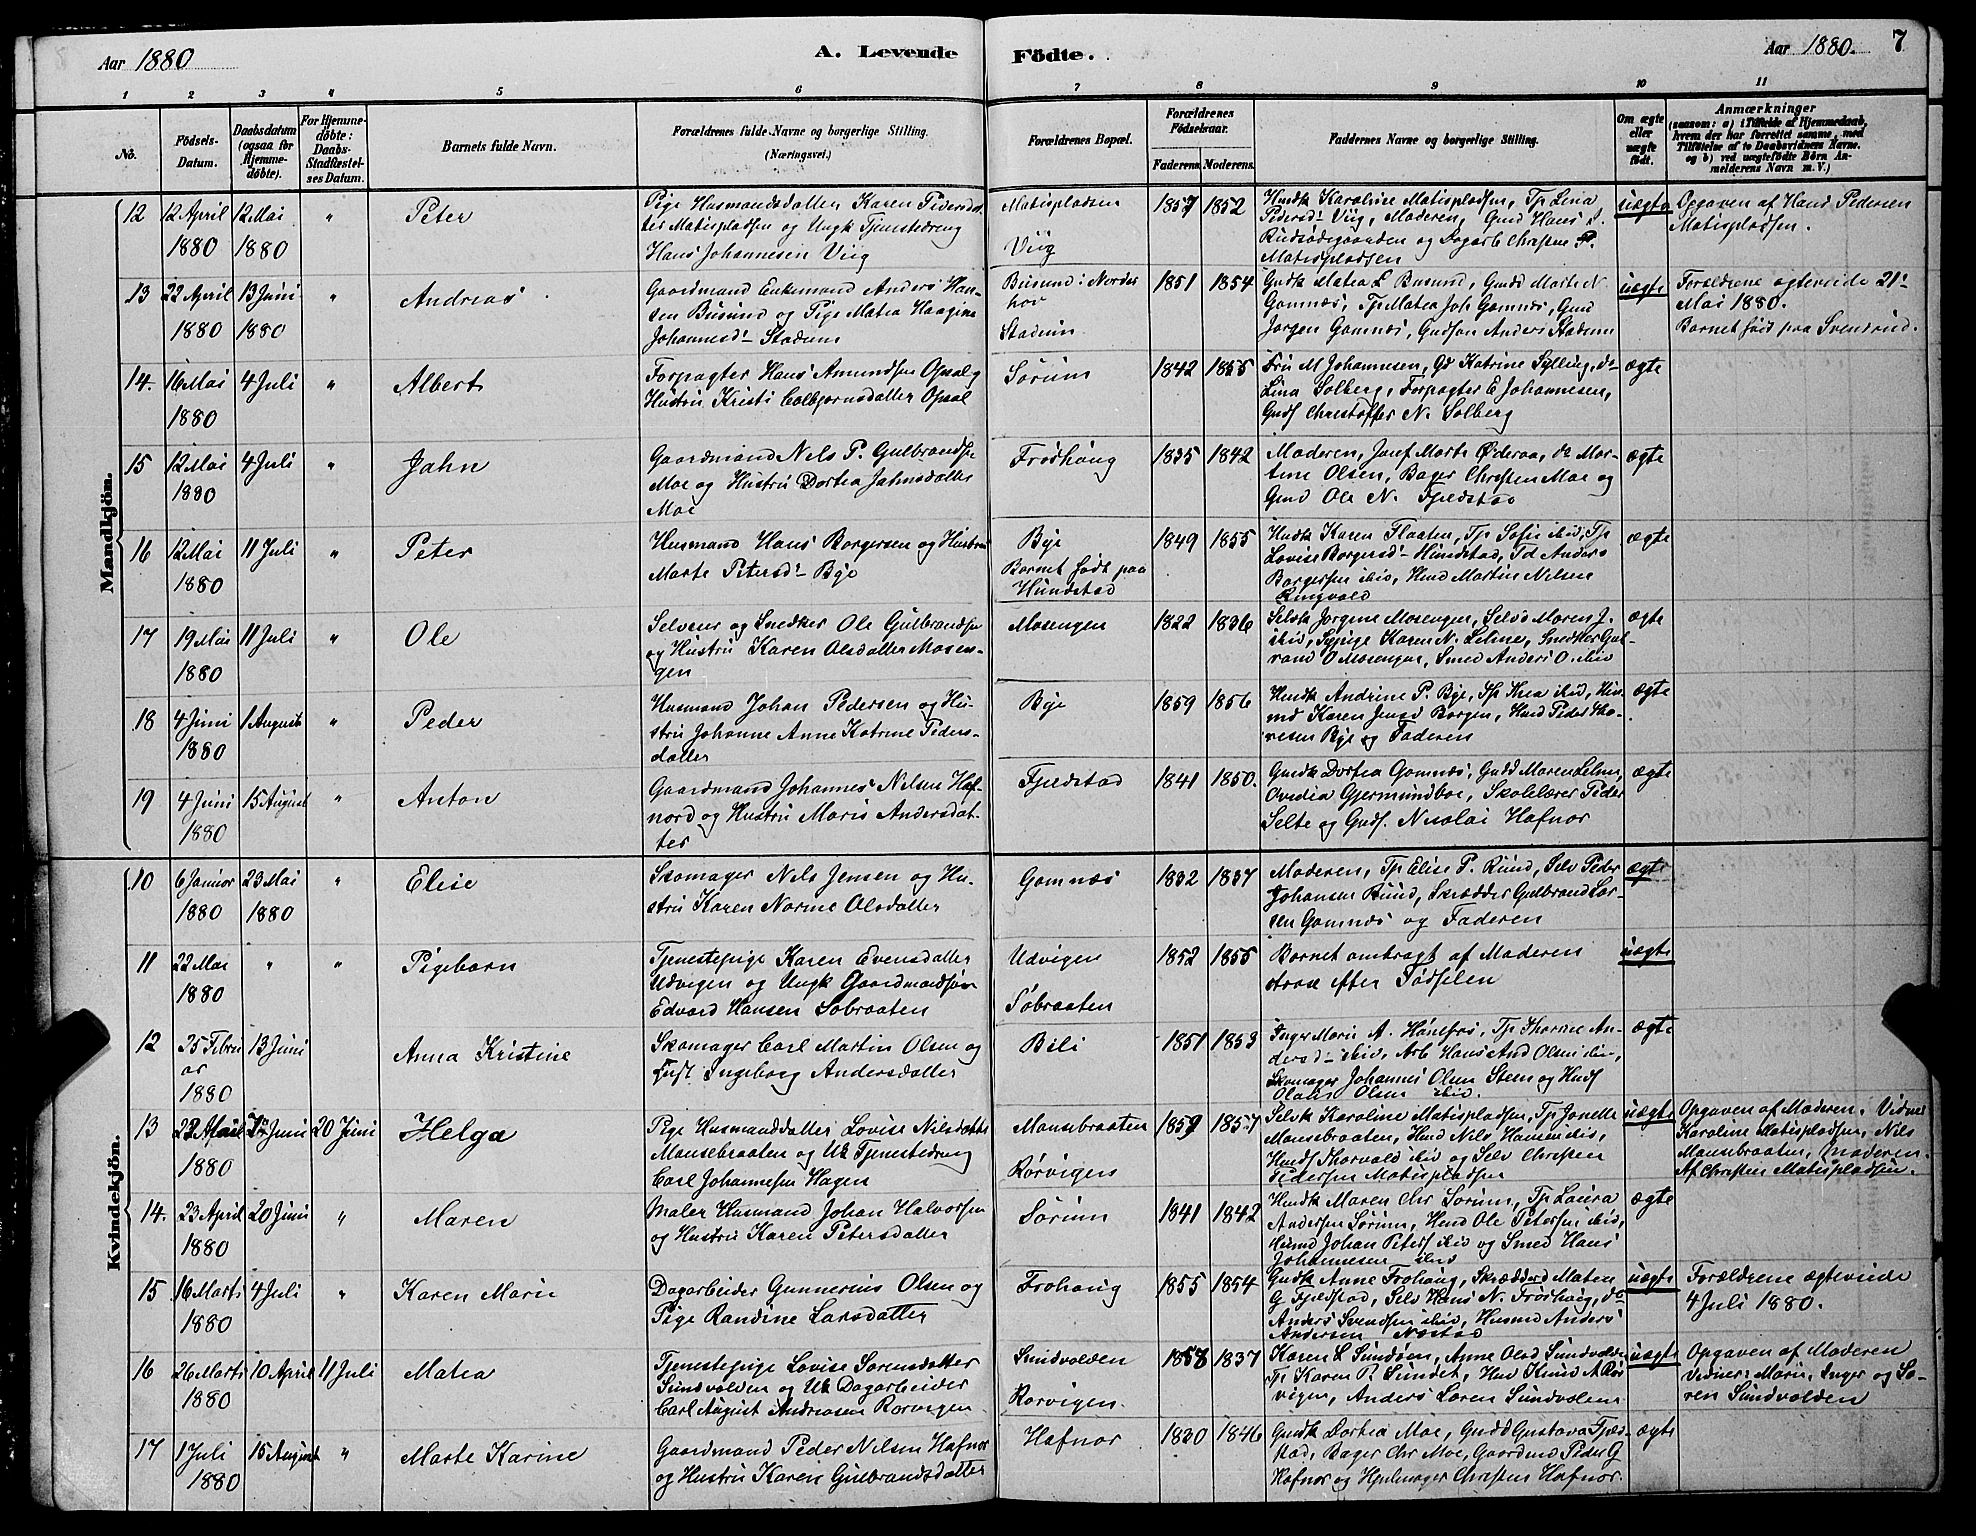 Aar 1880
A. Levende Fødte.
Aar 1880. 7
1 2 3 4 5 6 7 8 9 10 11
No. Fødsels-Datum. Daabsdatum (ogsaa for Hjemmedøbte). For Hjemmedøbte: Daabs-Stadfæstelses Datum. Barnets fulde Navn. Forældrenes fulde Navne og borgerlige Stilling. (Næringsvei.) Forældrenes Bopæl. Forældrenes Fødselsaar. Faderens. Moderens. Faddernes Navne og borgerlige Stilling. Om ægte eller uægte født. Anmærkninger (saasom: a) i Tilfælde af Hjemmedaab, hvem der har forrettet samme, med Tilføielse af to Daabsvidners Navne. og b) ved uægtefødte Børn Anmelderens Navn m. V.)
Mandkjøn.
12 12 April 1880 12 Mai 1880 " Peter
Pige Husmandsdatter Karen Pedersdatter Matispladsen og Ungk Tjenestedreng
Hans Johannesen Viig
Matispladsen
Viig
1857 1852
Husk Karoline Matispladsen, Tp Lina
Pedersd. Viig, Moderen, Gmd Hans
og Dagarb Christen P.
Matispladsen
uægte
Opgaven af Hans Pedersen
Matispladsen.
13 22 April 1880 13 Juni 1880 " Andreas
Gaardmand Enkemand Anders Hansen Busund og Pige Matea Haagine
Johannesd. Stadum
Busund i Norderhov
Stadum
1851 1854
Gmdk Matea L Busund, Gmdd Marte N
Gomnæs, Tp Matea Joh Gomnæs, Gmd
Jørgen Gomnæs, Gmdsøn Anders Stadum
uægte
Forældrene egteviede 21.
Mai 1880.
Barnet født paa Svensrud.
14. 16 Mai 1880 4 Juli " Albert
Forpagter Hans Amundsen Opsal og
Hustru Kristi Colbjørnsdatter Opsal
Sørum
1842 1855
Fru M Johannesen, Gd Katrine Sylling, do
Lina Solberg, Forpagter E Johannesen,
Gmds Christoffer N. Solberg
ægte
15 12 Mai 1880 4 Juli " Jahn
Gaardmand Nils P. Gulbrandsen
Moe og Hustru Dortea Jahnsdatter
Moe
Frøshaug
1835 1842
Moderen, Marte Øderaa, do Martine Olsen, Bager Christen Moe og
Gmd Ole N. Fjeldstad
ægte
16 12 Mai 1880 11 Juli " Peter
Husmand Hans Borgersen og Hustru
Marte Petersd. Bye
Bye
Barnet født paa
Hundstad
1849 1855
Husk Karen Flaaten, Tp Sofie ibid, Tp
Lovise Borgersd. Hundstad, Td Anders
Borgersen ibid, Hmd Martin Nilsen
Ringvold
ægte
17 19 Mai 1880 11 Juli " Ole
Selveier og Snedker Ole Gulbrandsen
og Hustru Karen Olsdatter Mosengen
Mosengen
1822 1836
Selvk Jørgine Mosengen, Maren J.
ibid, Sypige Karen N. Lehne, Snedker Gulbrand O Mosengen, Smed Anders O. ibid
ægte
18 4 Juni 1880 1 August " Peder
Husmand Johan Pedersen og Hustru Johanne Anne Katrine Pedersdatter
Bye
1859 1856
Husk Andrine P. Bye, Tp Thea ibid,
Karen Borgen, Hmd Peder Thoresen Bye og Faderen
ægte
19 4 Juni 1880 15 August " Anton
Gaardmand Johannes Nilsen Hafnord og Hustru Maria Andersdatter
Fjeldstad
1841 1850.
Gmdk Dortea Gomnæs, Gmdd Maren Lehne,
Ovidia Gjermundboe, Skolelærer Peder
Selte og Gmds. Nicolai Hafnor
ægte
Kvindekjøn.
10 6 Januar 1880 23 Mai 1880 " Elise
Skomager Nils Jensen og Hustru Karen Norine Olsdatter
Gomnæs
1832 1837
Moderen, Tp Elise P. Rund, Selv Peder
Johansen Bund, Skrædder Gulbrand Larsen Gomnæs og Faderen
ægte
11 22 Mai 1880 " " Pigebarn
Tjenestepige Karen Evensdatter
Udvigen og Ungk Gaardmandsøn
Edvard Hansen Søbraaten
Udvigen
Søbraaten
1852 1855
Barnet ombragt af Moderen
strax efter Fødselen
uægte
12 25 Februar 1880 13 Juni Anna Kristine
Skomager Carl Martin Olsen og
Hust Ingeborg Andersdatter
Bili
1851 1853
Inger Marie A. Hønefos, Tp Thorine Andersd. ibid, Arb Hans And Olsen ibid,
Skomager Johannes Olsen Steen og Husf
Olaus Olsen ibid.
ægte
13 22 April 1880 Juni 20 Juni Helga
Pige Husmanddatter Lovise Nilsdatter
Mansebraaten og Uk Tjenestedreng
Carl Johannesen Hagen
Mansebraaten
Rørvigen
1859 1857
Selvk Karoline Matispladsen, Tp Jonette
Mansebraaten, Hmd Nils Hansen ibid,
Hmds Thorvald ibid og Selv Christen
Pedersen Matispladsen
uægte
Opgaven af Moderen. Vidner
Karoline Matispladsen, Nils
Mansebraaten, Moderen.
Af Christen Matispladsen.
14. 23 April 1880 20 Juni " Maren
Maler Husmand Johan Halvorsen
og Hustru Karen Petersdatter
Sørum
1841 1842
Husk Maren Chr Sørum, Tp Laura
Andersen Sørum, Hmd Ole Petersen ibid,
Husmd Johan Peters ibid og Smed Hans
Johannesen ibid
ægte
15 16 Marts 1880 4 Juli " Karen Marie
Dagarbeider Gunnerius Olsen og
Pige Randine Larsdatter
Frøhaug
1855 1854
Gmdk Anne Frohaug, Skrædderd Maten
G Fjeldstad, Selv Hans N. Frøshaug, do
Anders Svendsen ibid, Husmd Anders
Andersen Næstad
uægte
Forældrene ægteviede
4 Juli 1880.
16 26 Marts 1880 10 April 11 Juli Matea
Tjenestepige Lovise Sørensdatter
Sundvolden og Uk Dagarbeider
Carl August Andreasen Rørvigen
Sundvolden
Rørvigen.
1857 1837
Karen L Sundøen, Anne Olsd Sundvolden
Tp Karen P. Sundet, Hmd Knud A Rørvigen, Anders Søren Sundvolden
uægte
Opgaven af Moderen
Vidner: Marie, Inger og Søren Sundvolden
17 1 Juli 1880 15 August " Marte Karine
Gaardmand Peder Nilsen Hafnor
og Hustru Karen Gulbrandsdatter
Hafnor
1830 1846
Gmdk Dortea Moe, Gmdd Gustava Fjeldstad, Bager Chr Moe, Gaardmd Peder G
Hafnor og Hjulmager Christen Hafnor.
ægte